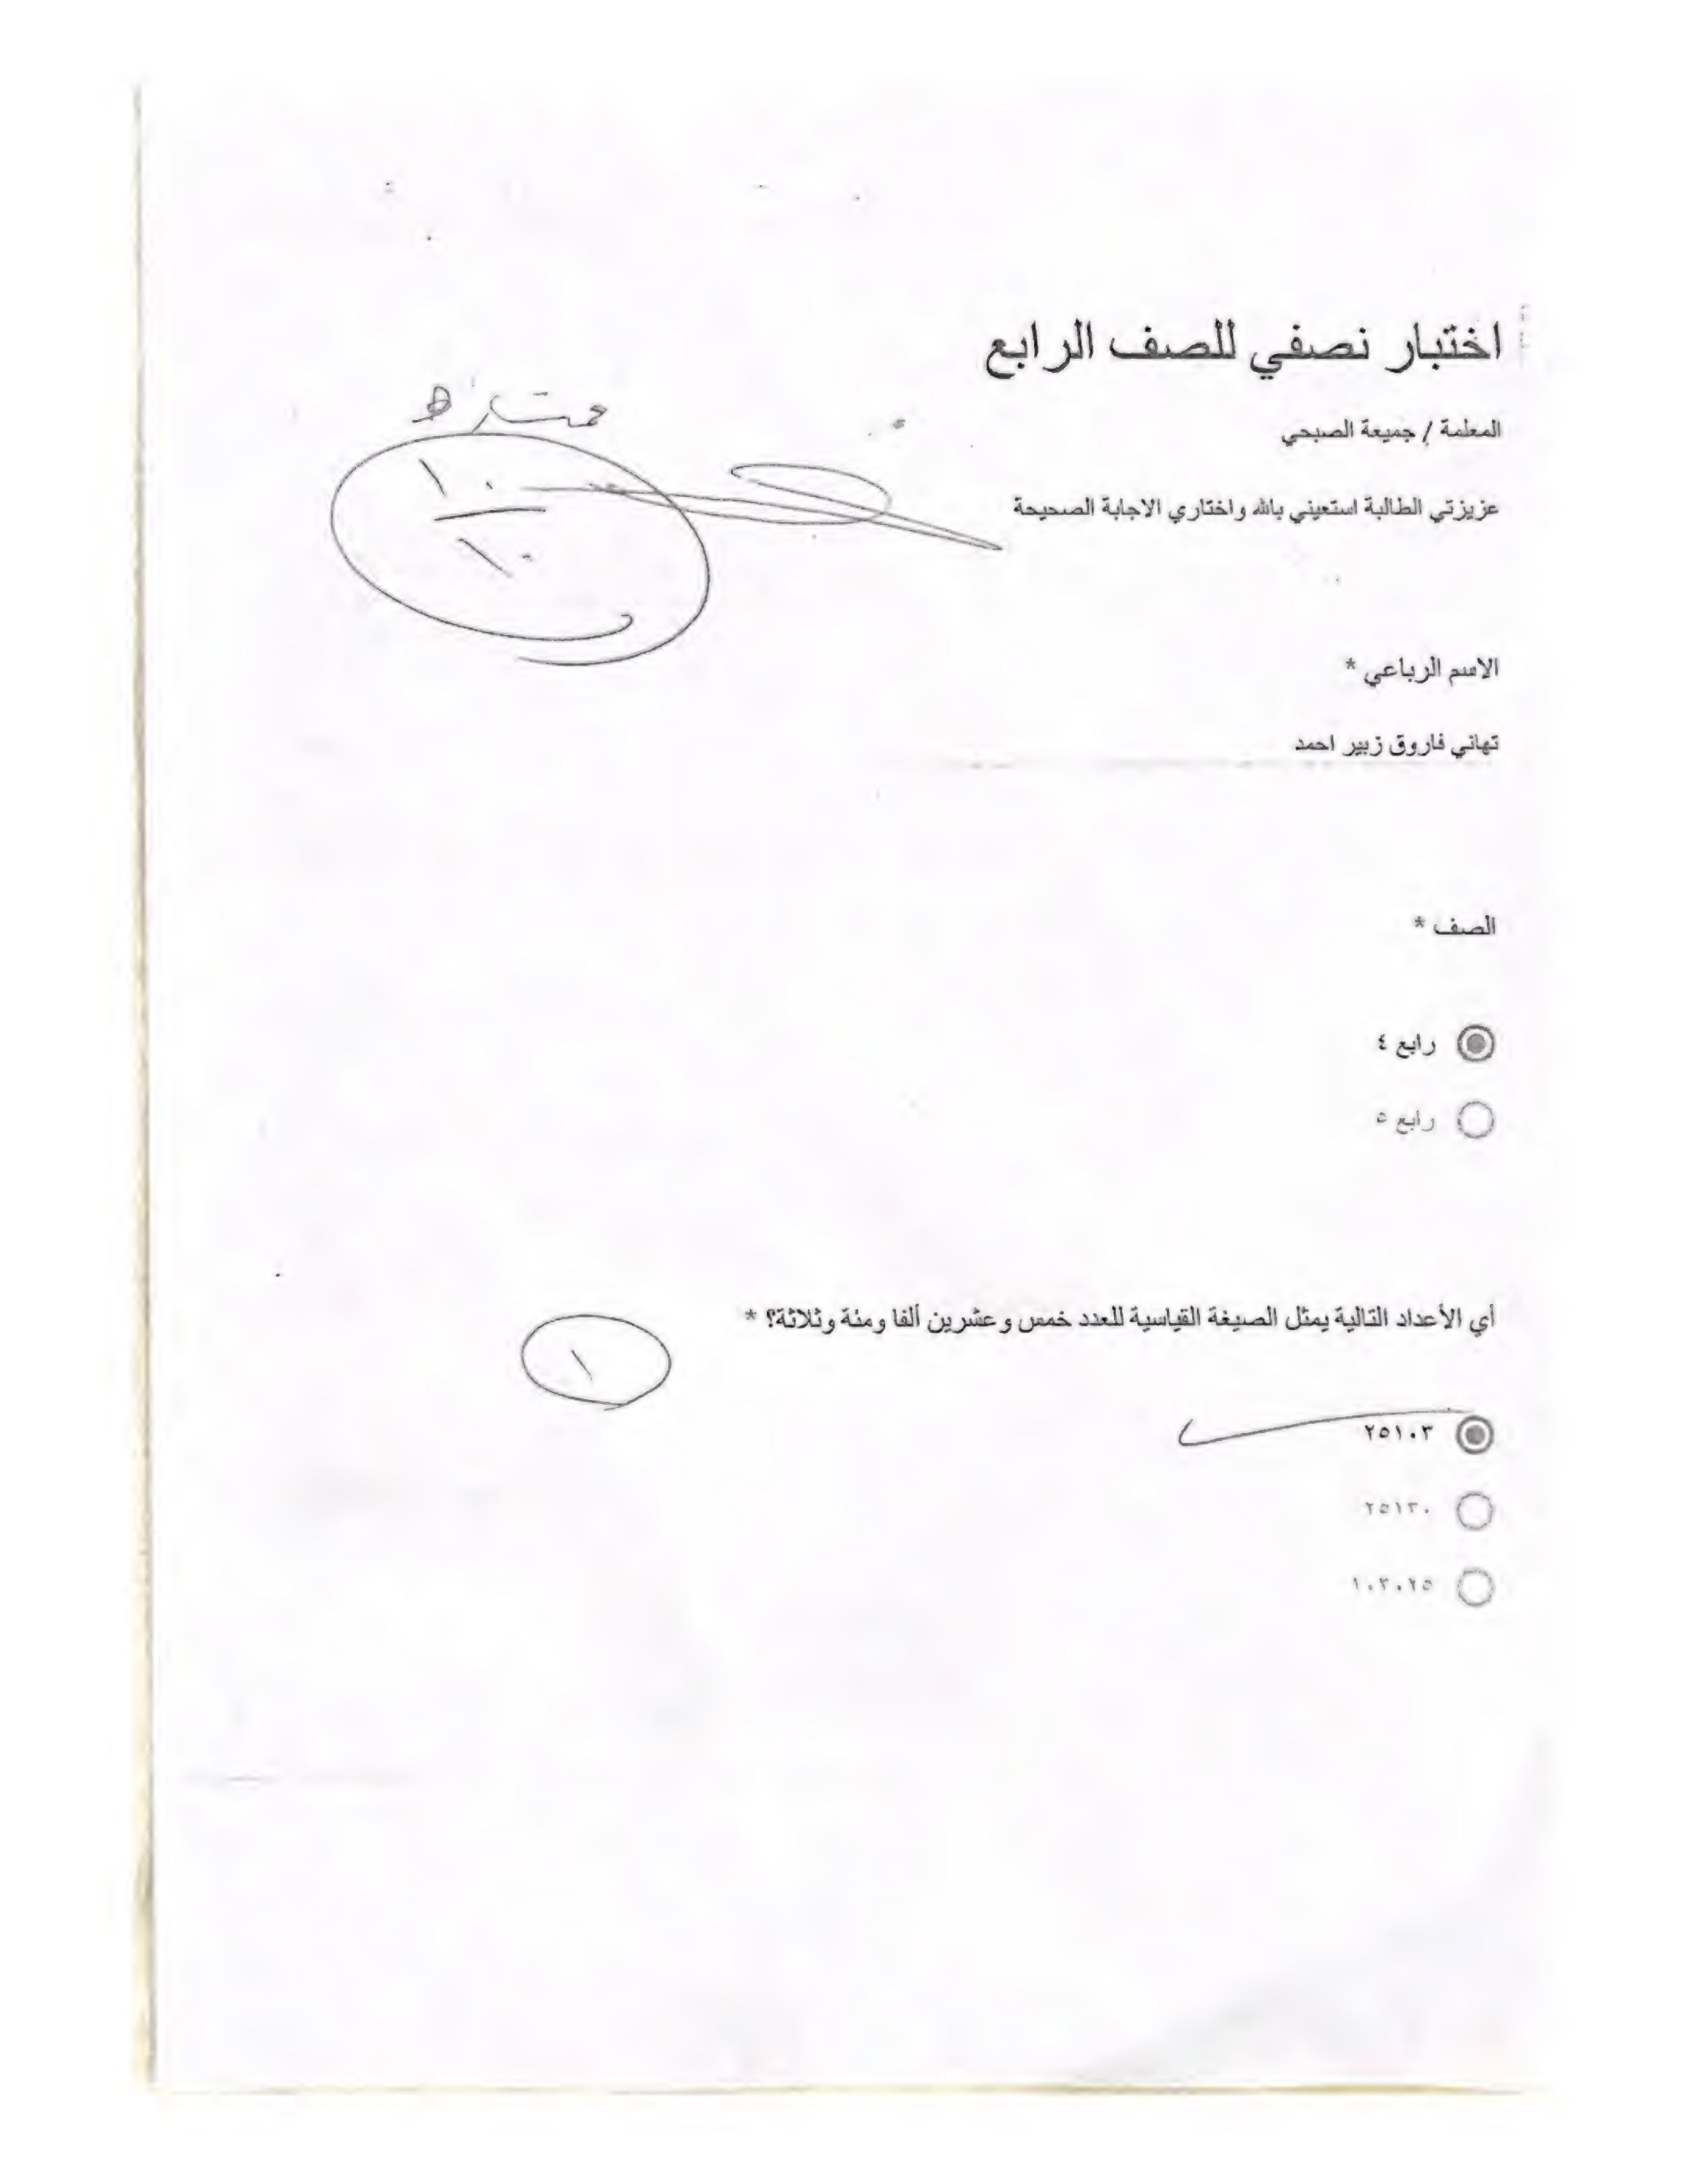 اختبار نصفي للصف الرابع
المعلمة / جميعة الصبحي
ممتازة
عزيزتي الطالبة استعيني بالله واختاري الاجابة الصحيحة
١٠
١٠
الاسم الرباعي *
تهاني فاروق زبير احمد
الصف *
رابع ٤
رابع ٥
أي الأعداد التالية يمثل الصيغة القياسية للعدد خمس وعشرين ألفا ومئة وثلاثة؟ *
١
٢٥١٠٣
٢٥١٣٠
١٠٣٠٢٥